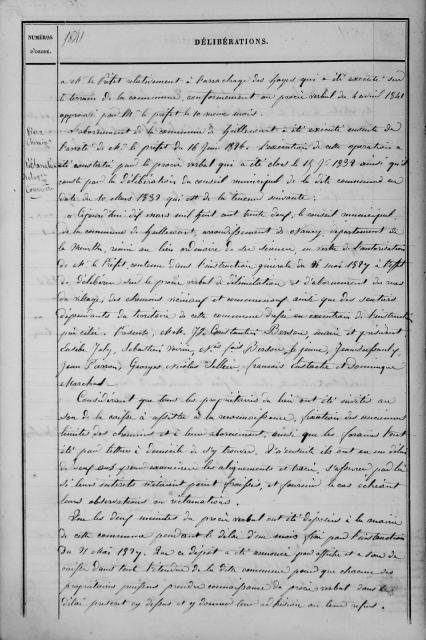 NUMÉROS D'ORDRE.
1841
DÉLIBÉRATIONS.
à M. le Préfet relativement à l'arrachage des hayes qui a été exécuté sur
le terrain de la commune, conformément au procès verbal du 4 avril 1841
approuvé par M. le préfet le 10 même mois.
L'abornement de la commune de a été exécuté ensuite de
l'arrêté de M. le préfet du 16 Juin 1836. L'exécution de cette opération a
été constatée par le procès verbal qui a été clos le 15 1837 ainsi qu'il
conste par la délibération du conseil municipal de la dite commune en
date du 10 mars 1839 qui est de la teneur suivante :
Cejourd'hui dix mars mil huit cent trente neuf, le conseil municipal
de la commune de arrondissement de Nancy, département de
la Meurthe, réuni au lieu ordinaire de ses séances, en vertu de l'autorisation
de M. le Préfet contenue dans l'instruction générale du 21 mai 1837 à l'effet
de délibérer sur le procès verbal de délimitation et d'abornement des rues
du village, des chemins vicinaux et communaux ainsi que des sentiers
dépendants du territoire de cette commune en exécution de l'instruction
précitée. Présents, M.M. Constantin Berson, maire et président
Joly, Sébastien Berson le jeune,
Jean Pierron, Georges, Nicolas François Eustache et Dominique
Marchal.
Considérant que tous les propriétaires du lieu ont été invités au
son de la caisse à assister à la reconnaissance, fixation des anciennes
limites des chemins et à leur abornement, ainsi que les forains l'ont
été par lettres à domicile de s'y trouver. Qu'ensuite ils ont eu un délai
de pour examiner les alignements et tracés, s'assurer par là
si leurs intérêts n'étaient point froissés, et fournir le cas échéant
leurs observations ou réclamations.
Que les deux minutes du procès verbal ont été déposées à la mairie
de cette commune pendant le délai d'un mois fixé par l'instruction
du 21 Mai 1837. Que ce dépôt a été annoncé par affiche et à son de
caisse dans toute l'étendue de la dite commune pour que chacun des
propriétaires puissent prendre connaissance du procès verbal dans le
délai prescrit et y donner leur adhésion ou leur refus.